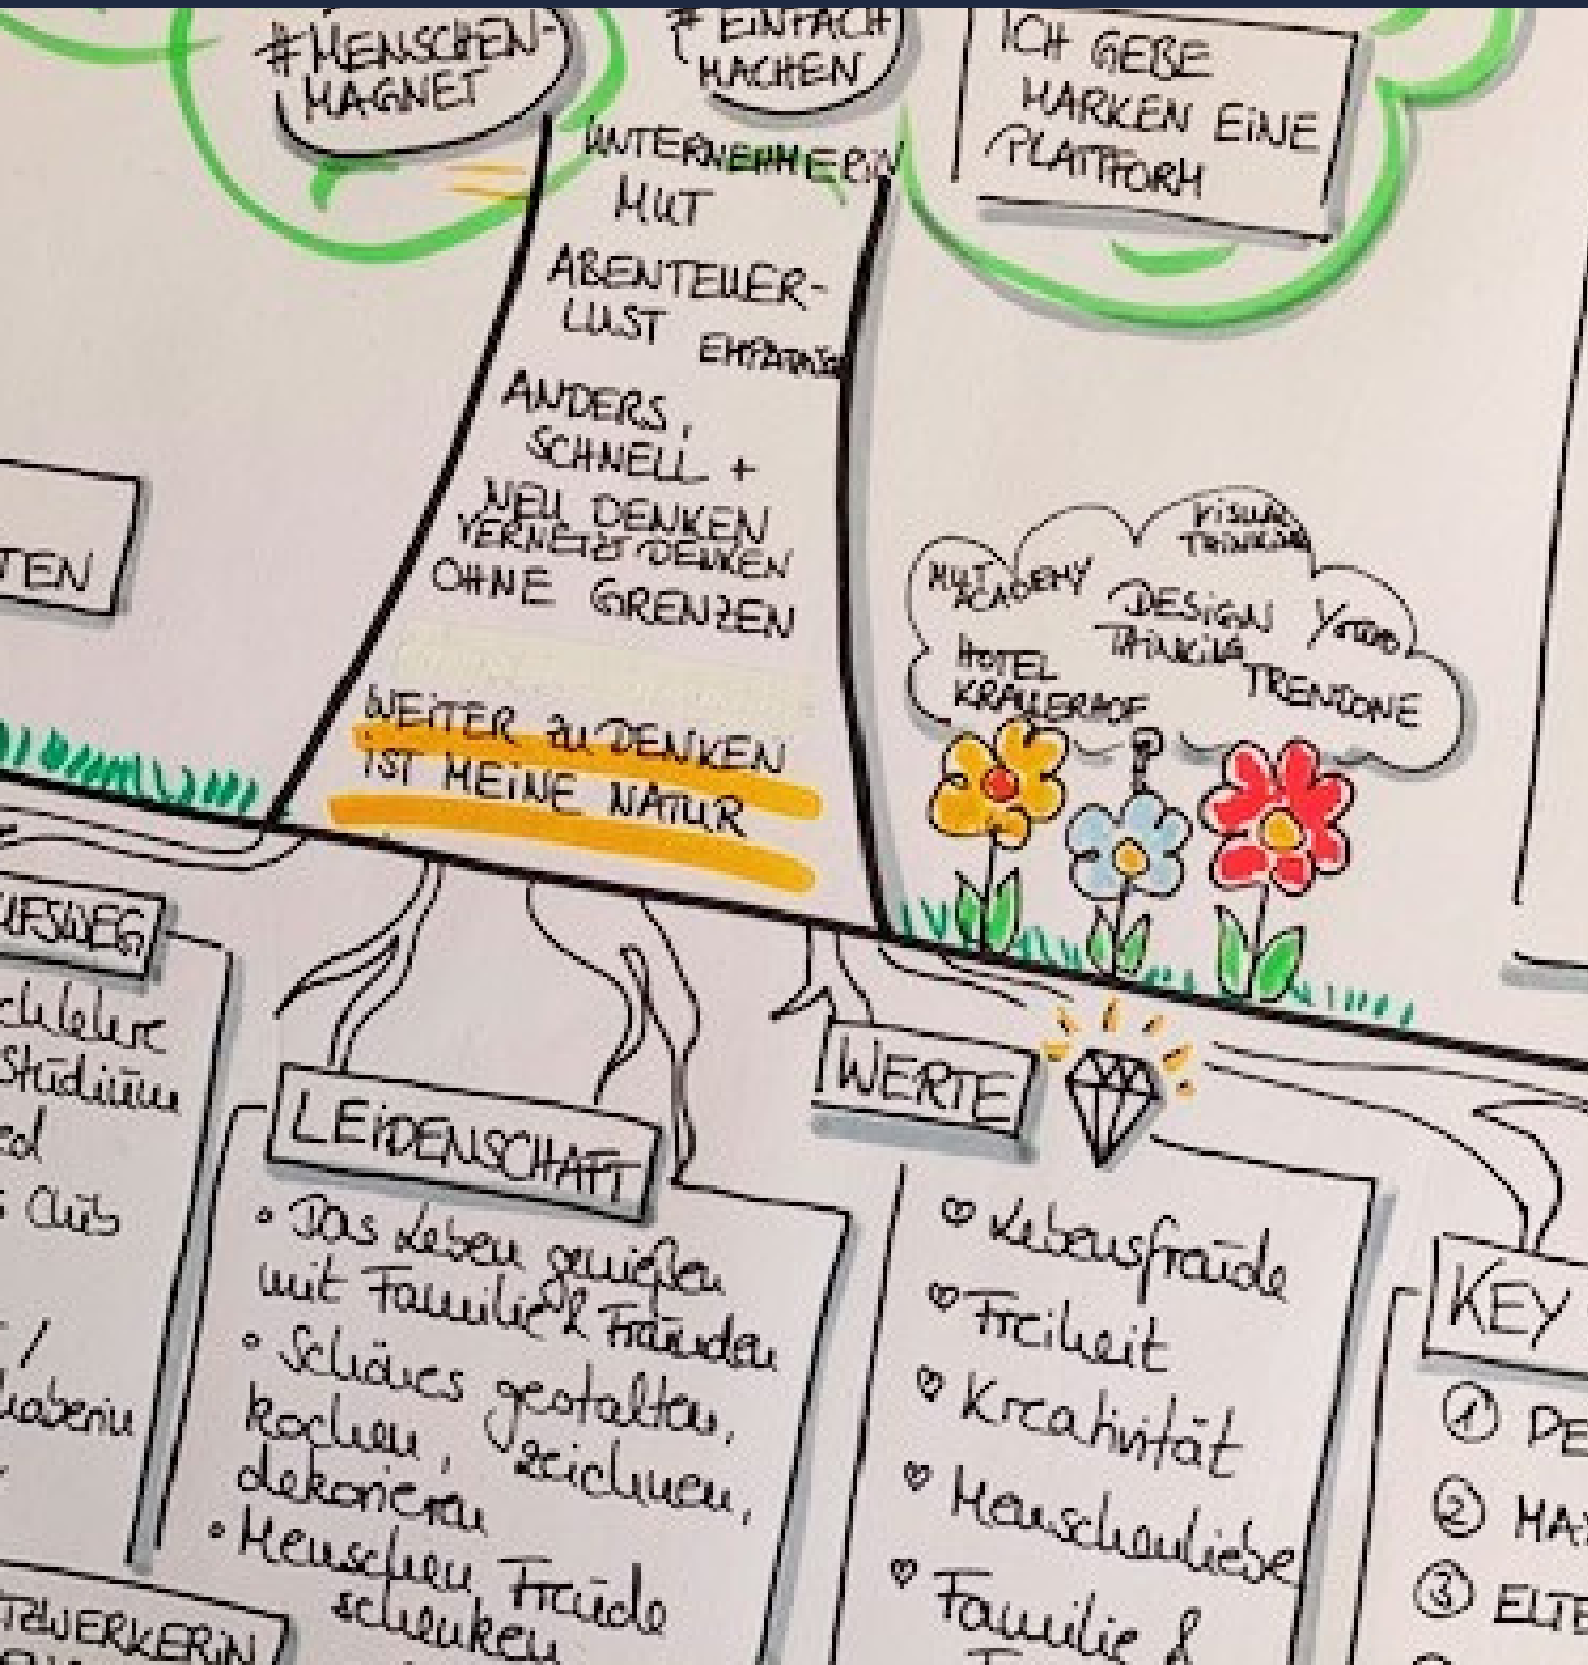 #MENSCHEN-
MAGNET
# EINFACH
MACHEN
ICH GEBE
MARKEN EINE
PLATTFORM
UNTERNEHMERIN
MUT
ABENTEUER-
LUST
EMPATHIE
ANDERS,
SCHNELL +
NEU DENKEN
VERNETZT DENKEN
OHNE GRENZEN
WEITER ZU DENKEN
IST MEINE NATUR
TEN
VISUAL
THINKING
MUT
ACADEMY
DESIGN
THINKING
HOTEL
KRALLERHOF
TRENDONE
FSWEG
Stūdiūm
ed
Clūb
haberin
TZWERKERIN
LEIDENSCHAFT
• Das Leben genießen
mit Familie & Fraūnden
• Schönes gestalten,
kochen, zeichnen,
dekorieren
• Menschen Freūde
schenken
WERTE
♡ Lebensfreūde
♡ Freiheit
♡ Kreativität
♡ Menschenliebe
♡ Familie &
KEY
① DE
② MA
③ ELTE